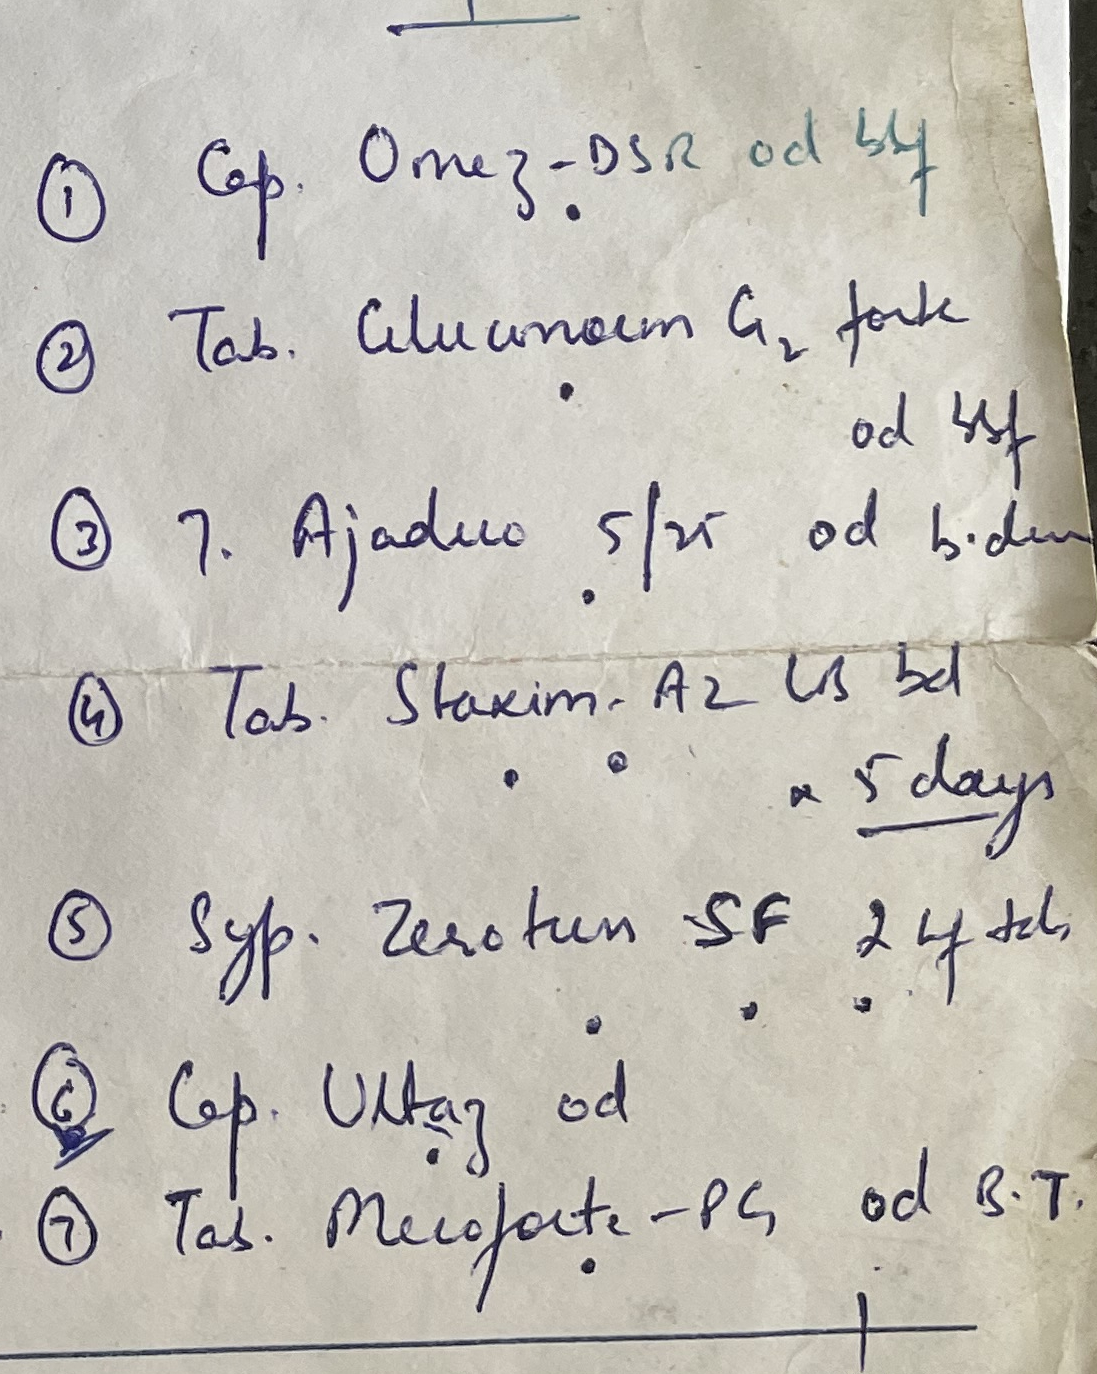 ① Cap. Omez-DSR od bbf
② Tab. Gluconorm G2 forte
od bbf
③ T. Ajaduo 5/25 od b.din
④ Tab. Staxim-AZ LB bd
x 5 days
⑤ Syp. Zerotuss SF 2 tsf tds
⑥ Cap. Ultaz od
⑦ Tab. Mecoforte-PG od B.T.